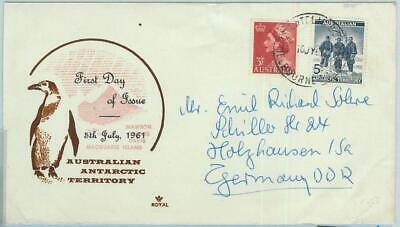 First Day
of Issue
5th July, 1961
MAWSON
DAVIS
MACQUARIE ISLAND
AUSTRALIAN
ANTARCTIC
TERRITORY
ROYAL
AUSTRALIA
AUSTRALIAN
5D
Mr. Emil Richard
Holzhausen / Sa
Germany DDR